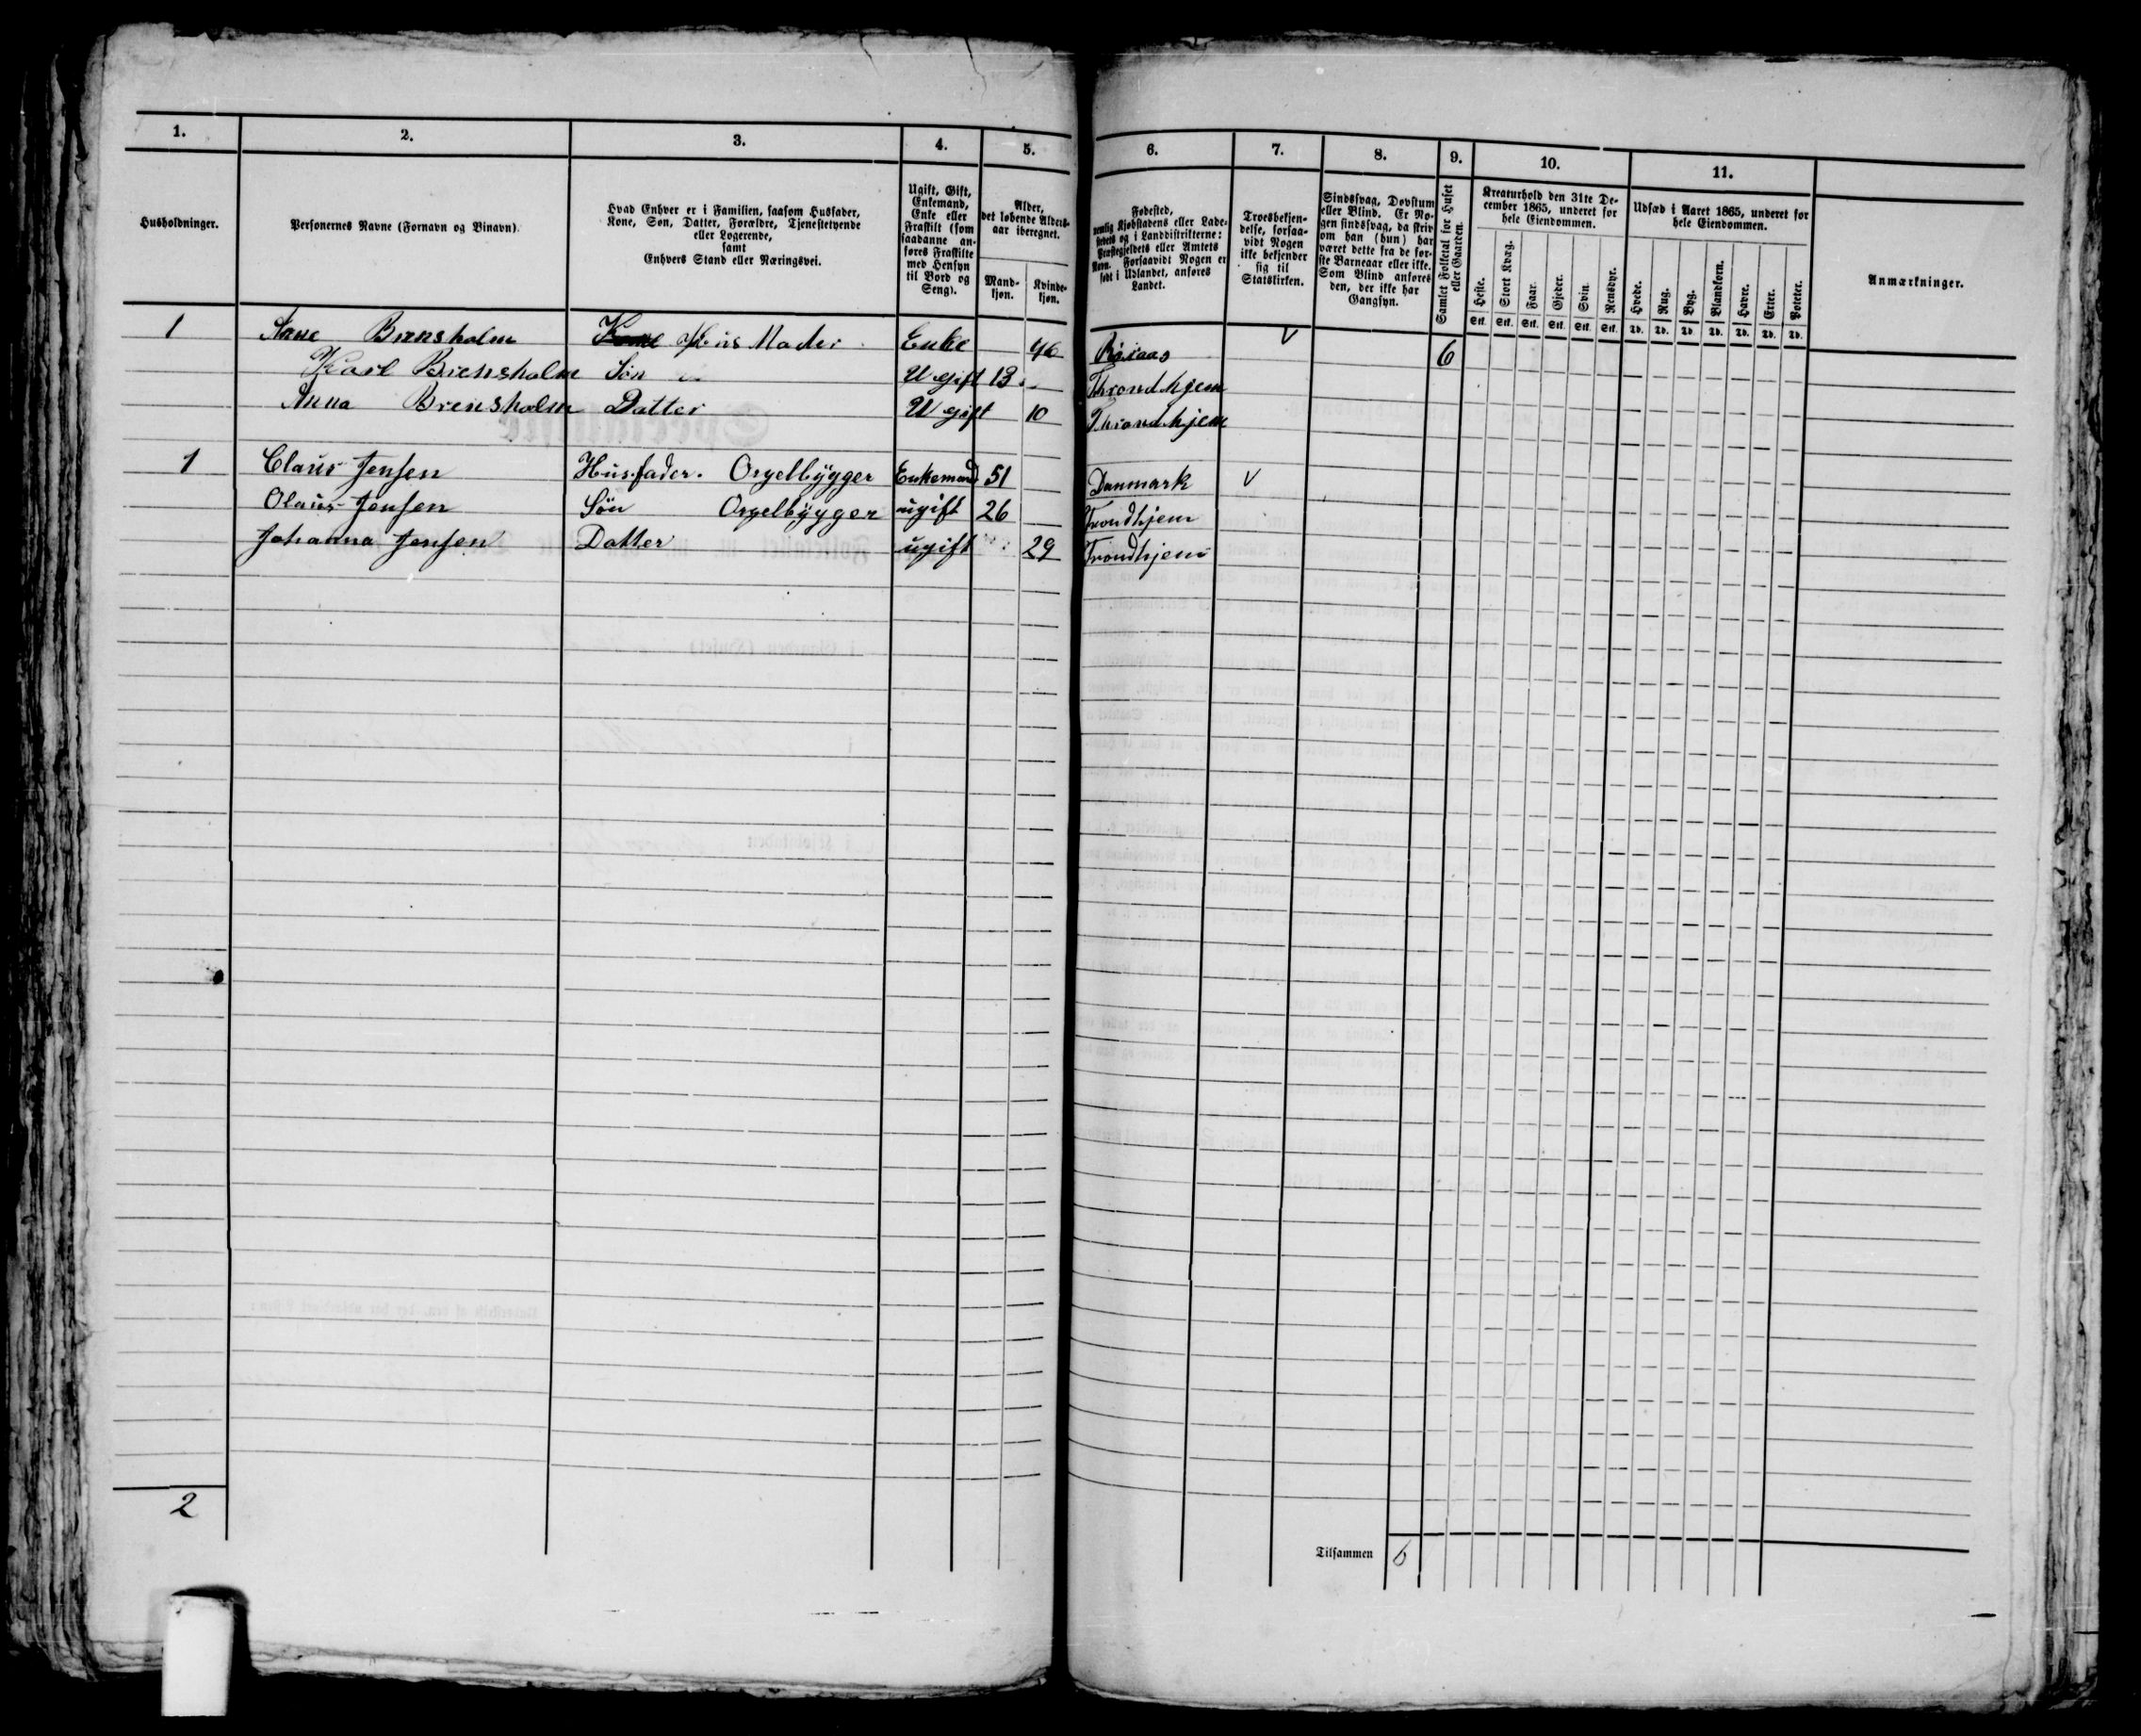 1. 2. 3. 4. 5. 6. 7. 8. 9. 10. 11.
Husholdninger.
Personernes Navne (Fornavn og Binavn).
Hvad Enhver er i Familien, saasom Husfader,
Kone, Søn, Datter, Forældre, Tjenestetyende
eller Logerende,
samt
Enhvers Stand eller Næringsvei.
Ugift, Gift,
Enkemand,
Enke eller
Fraskilt (som
saadanne an-
føres Fraskilte
med Hensyn
til Bord og
Seng).
Alder,
det løbende Alders-
aar iberegnet.
Mand-
kjøn.
Kvinde-
kjøn.
Fødested,
nemlig Kjøbstadens eller Lade-
stedets og i Landdistrikterne:
Præstegjeldets eller Amtets
Navn. Forsaavidt Nogen er
født i Udlandet, anføres
Landet.
Troesbekjen-
delse, forsaa-
vidt Nogen
ikke bekjender
sig til
Statskirken.
Sindssvag, Døvstum
eller Blind. Er No-
gen sindssvag, da skriv
om han (hun) har
været dette fra de før-
ste Barneaar eller ikke.
Som Blind anføres
den, der ikke har
Gangsyn.
Samlet Folketal for Huset
eller Gaarden.
Kreaturhold den 31te De-
cember 1865, underet for
hele Eiendommen.
Heste. Stort Kvæg. Faar. Gjeder. Svin. Rensdyr.
Stk. Stk. Stk. Stk. Stk. Stk.
Udsæd i Aaret 1865, underet for
hele Eiendommen.
Hvede. Rug. Byg. Blandkorn. Havre. Erter. Poteter.
Td. Td. Td. Td. Td. Td. Td.
Anmærkninger.
1 Anne Brensholm Mader Enke 46 Røraas 6
Karl Brensholm Søn Ugift 13 Throndhjem
Anna Brensholm Datter Ugift 10 Throndhjem
1 Claus Jensen Husfader. Orgelbygger Enkemand 51 Danmark
Olaus Jensen Søn Orgelbygger ugift 26 Trondhjem
Johanna Jensen Datter ugift 29 Trondhjem
2
Tilsammen 6